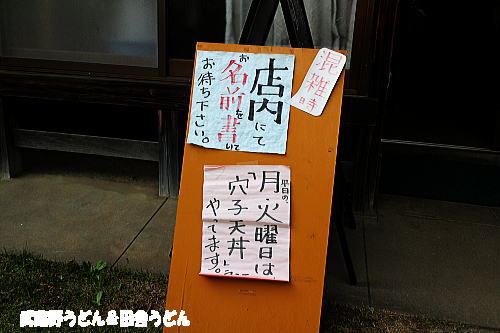 混雑時
店内にて
お名前を書いて
お待ち下さい。
平日の、
月・火曜日は、
「穴子天丼」
やってます。
武蔵野うどん＆田舎うどん